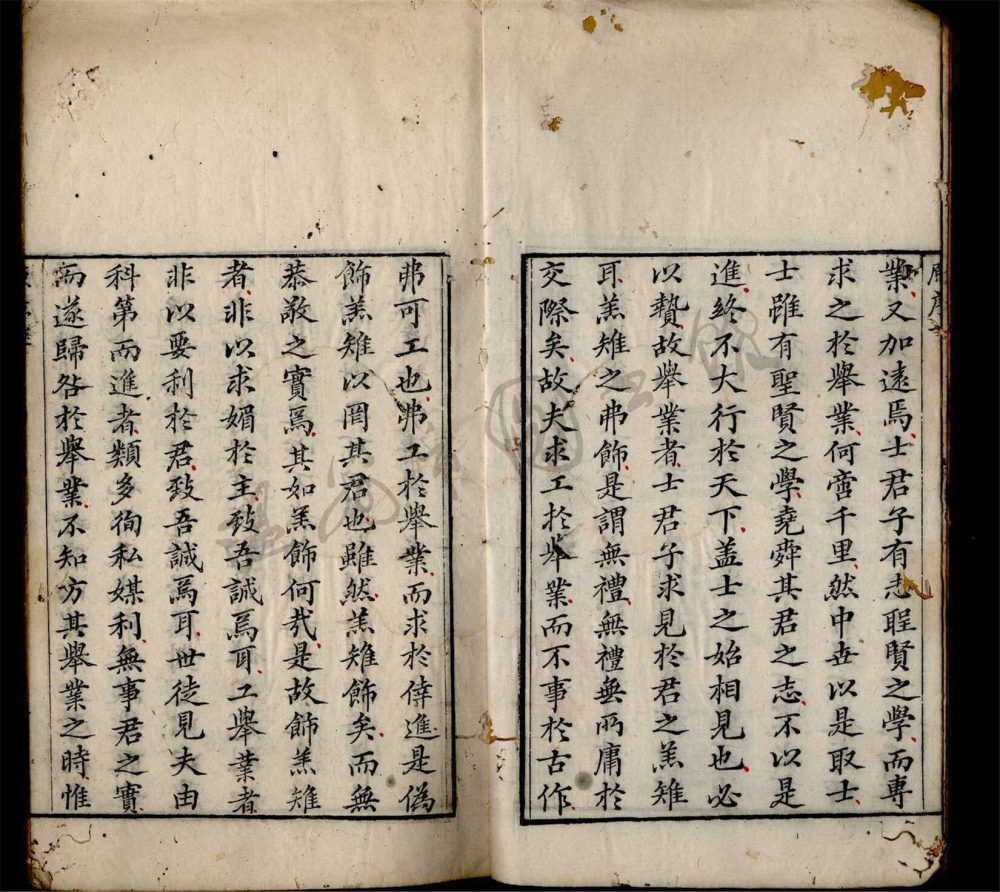 業又加遠焉士君子有志聖賢之學而專
求之於舉業何啻千里然中世以是取士
士雖有聖賢之學堯舜其君之志不以是
進終不大行於天下盖士之始相見也必
以贄故舉業者士君子求見於君之羔雉
耳羔雉之弗飾是謂無禮無禮無所庸於
交際矣故夫求工於舉業而不事於古作
弗可工也弗工於舉業而求於倖進是偽
飾羔雉以罔其君也雖然羔雉飾矣而無
恭敬之實焉其如羔飾何㦲是故飾羔雉
者非以求媚於主致吾誠焉耳工舉業者
非以要利於君致吾誠焉耳世徒見夫由
科第而進者類多徇私媒利無事君之實
而遂歸咎於舉業不知方其舉業之時惟